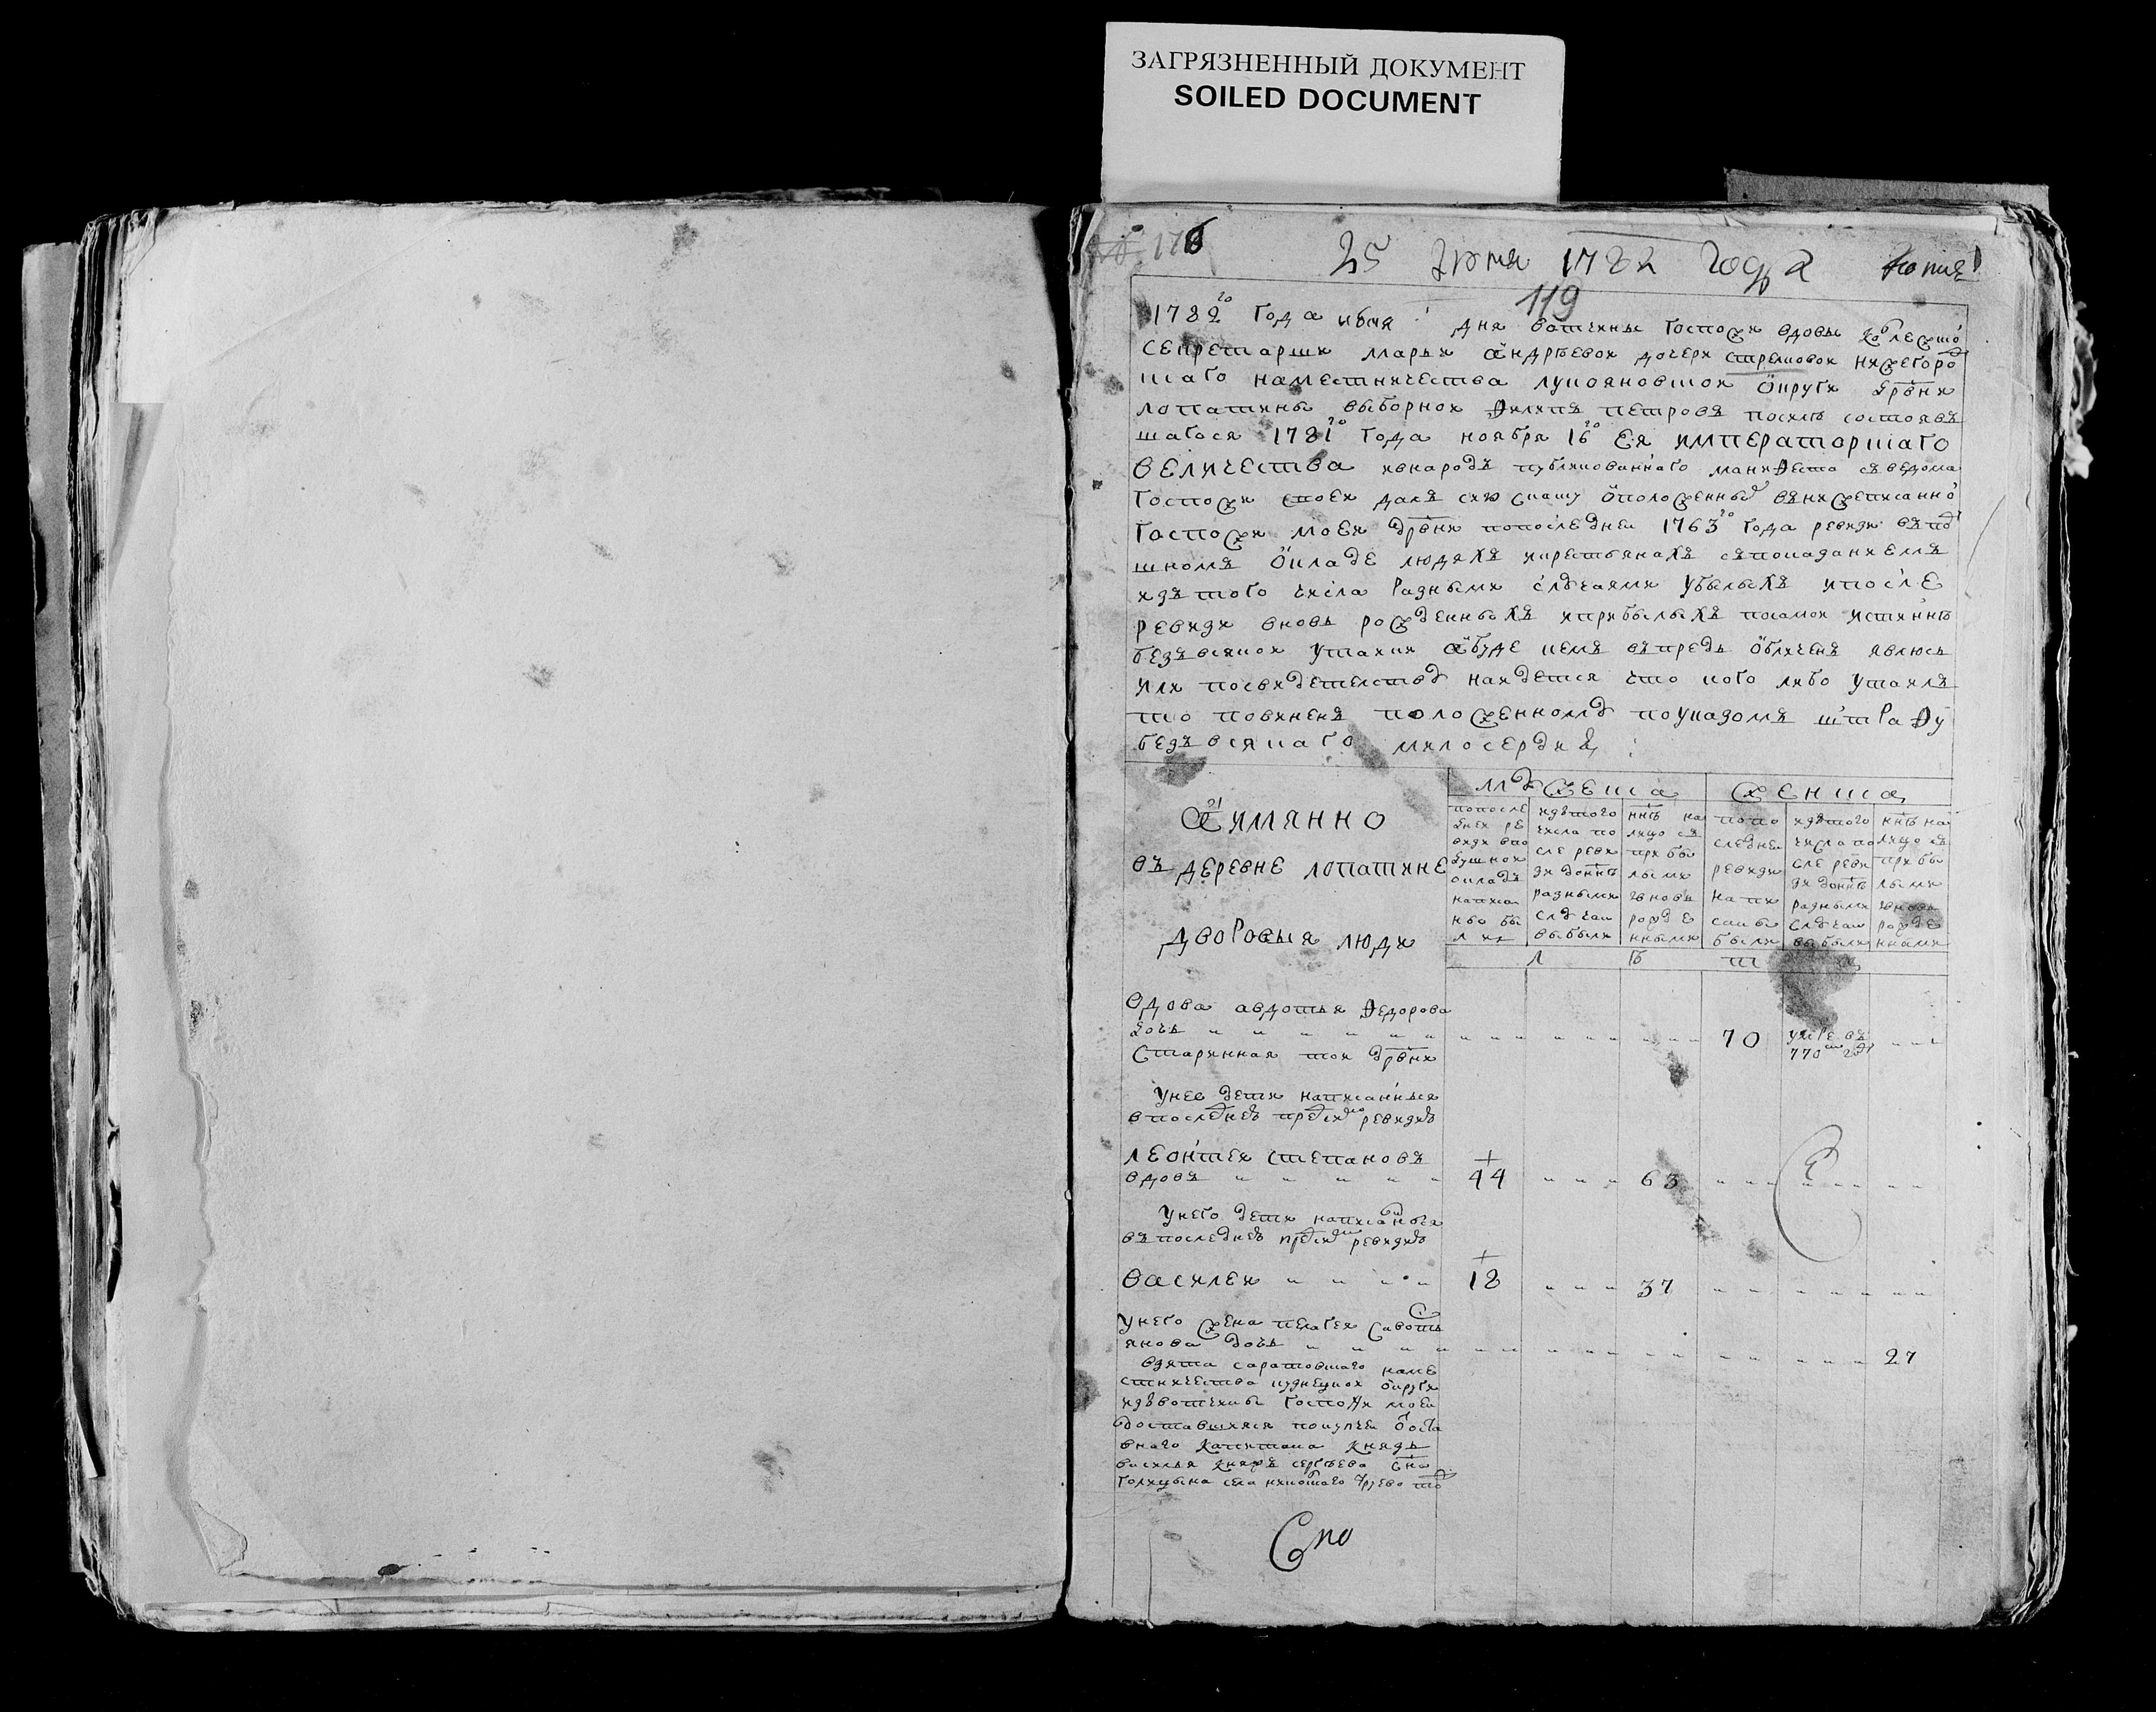 ЗАГРЯЗНЕННЫЙ ДОКУМЕНТ
SOILED DOCUMENT
176
25 июня 1782 года копия
119
1782го года июня дня вотчины госпожи вдовы колежско
секретарши марьи андрѣевой дочери стремовой нижегоро
скаго наместничества лукояновской округи дрвни
лопатины выборной филипъ петровъ после состоявъ
шагося 1781го года ноября 16го Ея императорскаго
величества инародъ публикованнаго манифеста съведома
госпожи своей далъ сию скаску оположенныхъ вънижеписанно
госпожи моей дрвни попоследней 1763го года ревизи въпод
шномъ окладе людяхъ икрестьянахъ съпоказаниемъ
изътого числа разными случаями убылыхъ ипосле
ревизи вновь рожденныхъ иприбылыхъ посамой истиннѣ
безъвсякой утайки абуде чемъ въпредь обличенъ явлюсь
или посвидетелству найдется что кого либо утаилъ
то повиненъ положенному поуказомъ штрафу
безъвсякаго милосердия
Аимянно
въ деревне лопатине
дворовыя люди
мужеска
женска
попосле
дней ре
визи впо
душной
окладъ
написа
ны бы
ли
изътого
числа по
сле реви
зи донынѣ
разными
случаи
выбыли
нинѣ на
лицо съ
прибы
лыми
ивновь
рожде
нными
попо
следней
ревизи
напи
саны
были
изътого
числа по
сле реви
зи донынѣ
разными
случаи
выбыли
ниѣ на
лицо съ
прибы
лыми
ивновь
рожде
нными
л ѣ т а
вдова авдотья федорова
дочь 70 умре въ
770м году
Старинная той дрвни
Унее дети написанныя
впоследнею пред сим ревизию
леонтей степановъ
вдовъ 44 63
Унего дети написанныя
въпоследнею пред сим ревизию
василей 18 37
унего жена пелагея савость
янова дочь 27
взята саратовскаго наме
стничества кузнецкой округи
изъвотчины госпожи моей
доставшияся покупкой от оста
внаго капитана князь
василья князь сергѣева сна
голицына села никольскаго
Спо